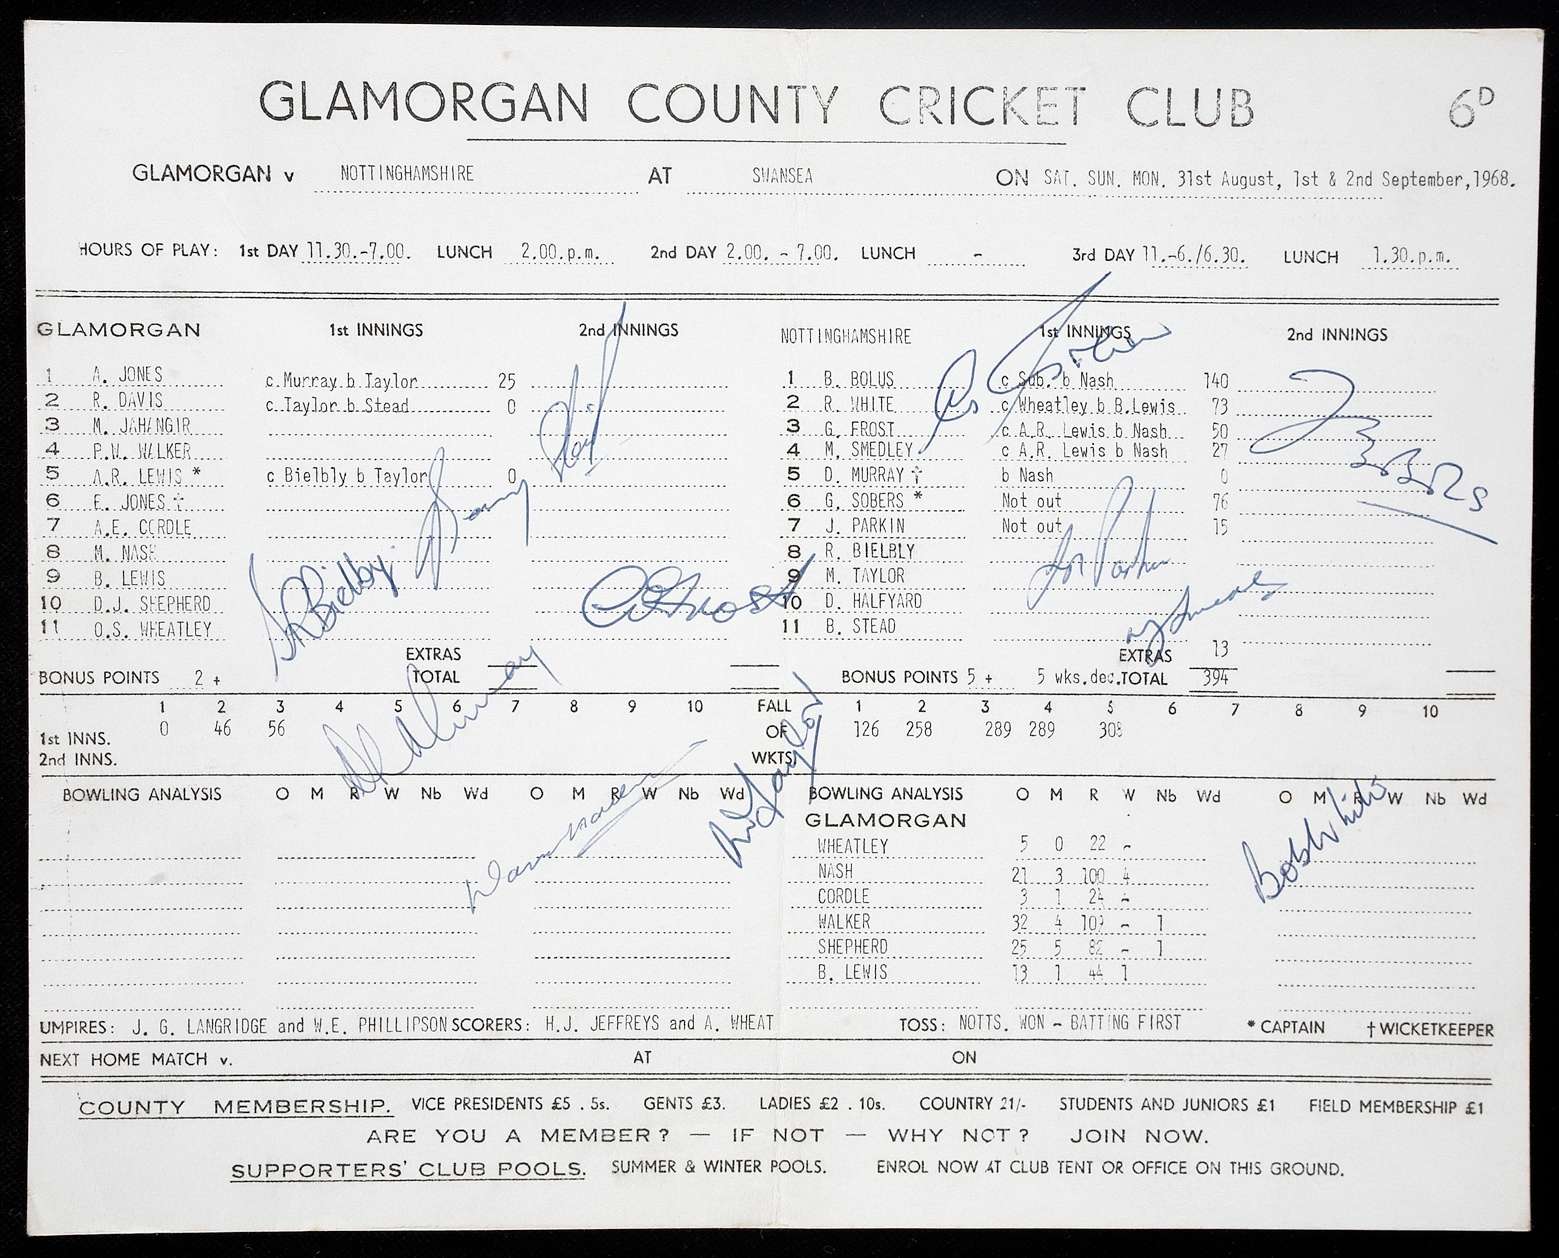 GLAMORGAN COUNTY CRICKET CLUB 6D
GLAMORGAN v NOTTINGHAMSHIRE AT SWANSEA ON SAT. SUN. MON. 31st August, 1st & 2nd September, 1968.
HOURS OF PLAY: 1st DAY 11.30.-7.00. LUNCH 2.00.p.m. 2nd DAY 2.00. - 7.00. LUNCH - 3rd DAY 11.-6./6.30. LUNCH 1.30.p.m.
GLAMORGAN 1st INNINGS 2nd INNINGS
1 A. JONES c Murray b Taylor 25
2 R. DAVIS c Taylor b Stead 0
3 M. JAHANGIR
4 P.W. WALKER
5 A.R. LEWIS * c Bielbly b Taylor 0
6 E. JONES †
7 A.E. CORDLE
8 M. NASH
9 B. LEWIS
10 D.J. SHEPHERD
11 O.S. WHEATLEY
EXTRAS
BONUS POINTS 2 + TOTAL
NOTTINGHAMSHIRE 1st INNINGS 2nd INNINGS
1 B. BOLUS c Sub. b Nash 140
2 R. WHITE c Wheatley b B.Lewis 73
3 G. FROST c A.R. Lewis b Nash 50
4 M. SMEDLEY c A.R. Lewis b Nash 27
5 D. MURRAY † b Nash 0
6 G. SOBERS * Not out 76
7 J. PARKIN Not out 15
8 R. BIELBLY
9 M. TAYLOR
10 D. HALFYARD
11 B. STEAD
EXTRAS 13
BONUS POINTS 5 + 5 wks.dec. TOTAL 394
1 2 3 4 5 6 7 8 9 10 FALL OF WKTS. 1 2 3 4 5 6 7 8 9 10
1st INNS. 0 46 56 126 258 289 289 308
2nd INNS.
BOWLING ANALYSIS O M R W Nb Wd O M R W Nb Wd
BOWLING ANALYSIS O M R W Nb Wd O M R W Nb Wd
GLAMORGAN
WHEATLEY 5 0 22 -
NASH 21 3 100 4
CORDLE 3 1 24 -
WALKER 32 4 - 1
SHEPHERD 25 5 82 - 1
B. LEWIS 13 1 44 1
UMPIRES: J. G. LANGRIDGE and W.E. PHILLIPSON SCORERS: H.J. JEFFREYS and A. WHEAT TOSS: NOTTS. WON - BATTING FIRST * CAPTAIN † WICKETKEEPER
NEXT HOME MATCH v. AT ON
COUNTY MEMBERSHIP. VICE PRESIDENTS £5 . 5s. GENTS £3. LADIES £2 . 10s. COUNTRY 21/- STUDENTS AND JUNIORS £1 FIELD MEMBERSHIP £1
ARE YOU A MEMBER? — IF NOT — WHY NOT? JOIN NOW.
SUPPORTERS' CLUB POOLS. SUMMER & WINTER POOLS. ENROL NOW AT CLUB TENT OR OFFICE ON THIS GROUND.
SR Bielby
Bob White